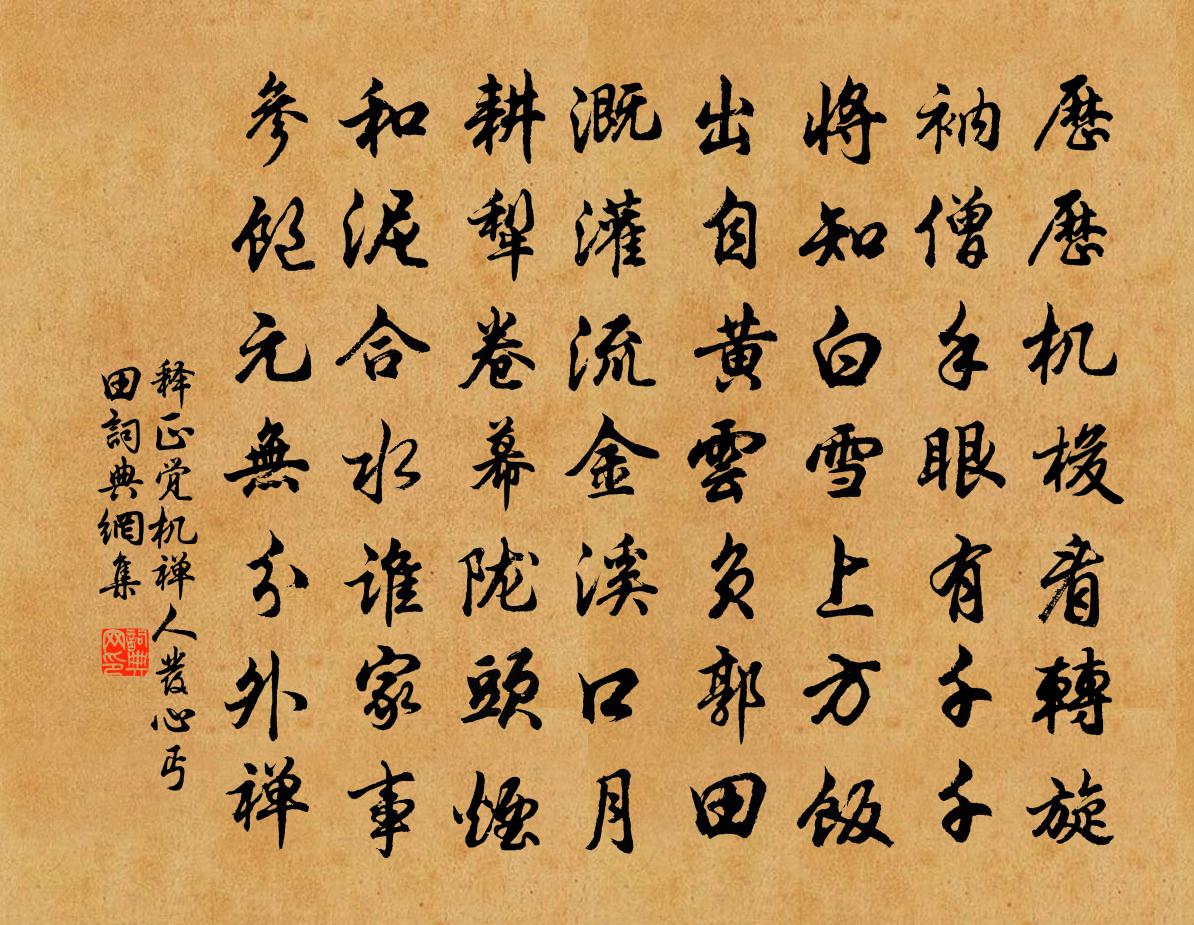 歷歷机梭看轉旋
衲僧手眼有千千
將知白雪上方飯
出自黃雲負郭田
溉灌流金溪口月
耕犁卷幕陇頭煙
和泥合水誰家事
參飽元無分外禪
释正觉机禅人發心丐
田詞典網集
詞典网印